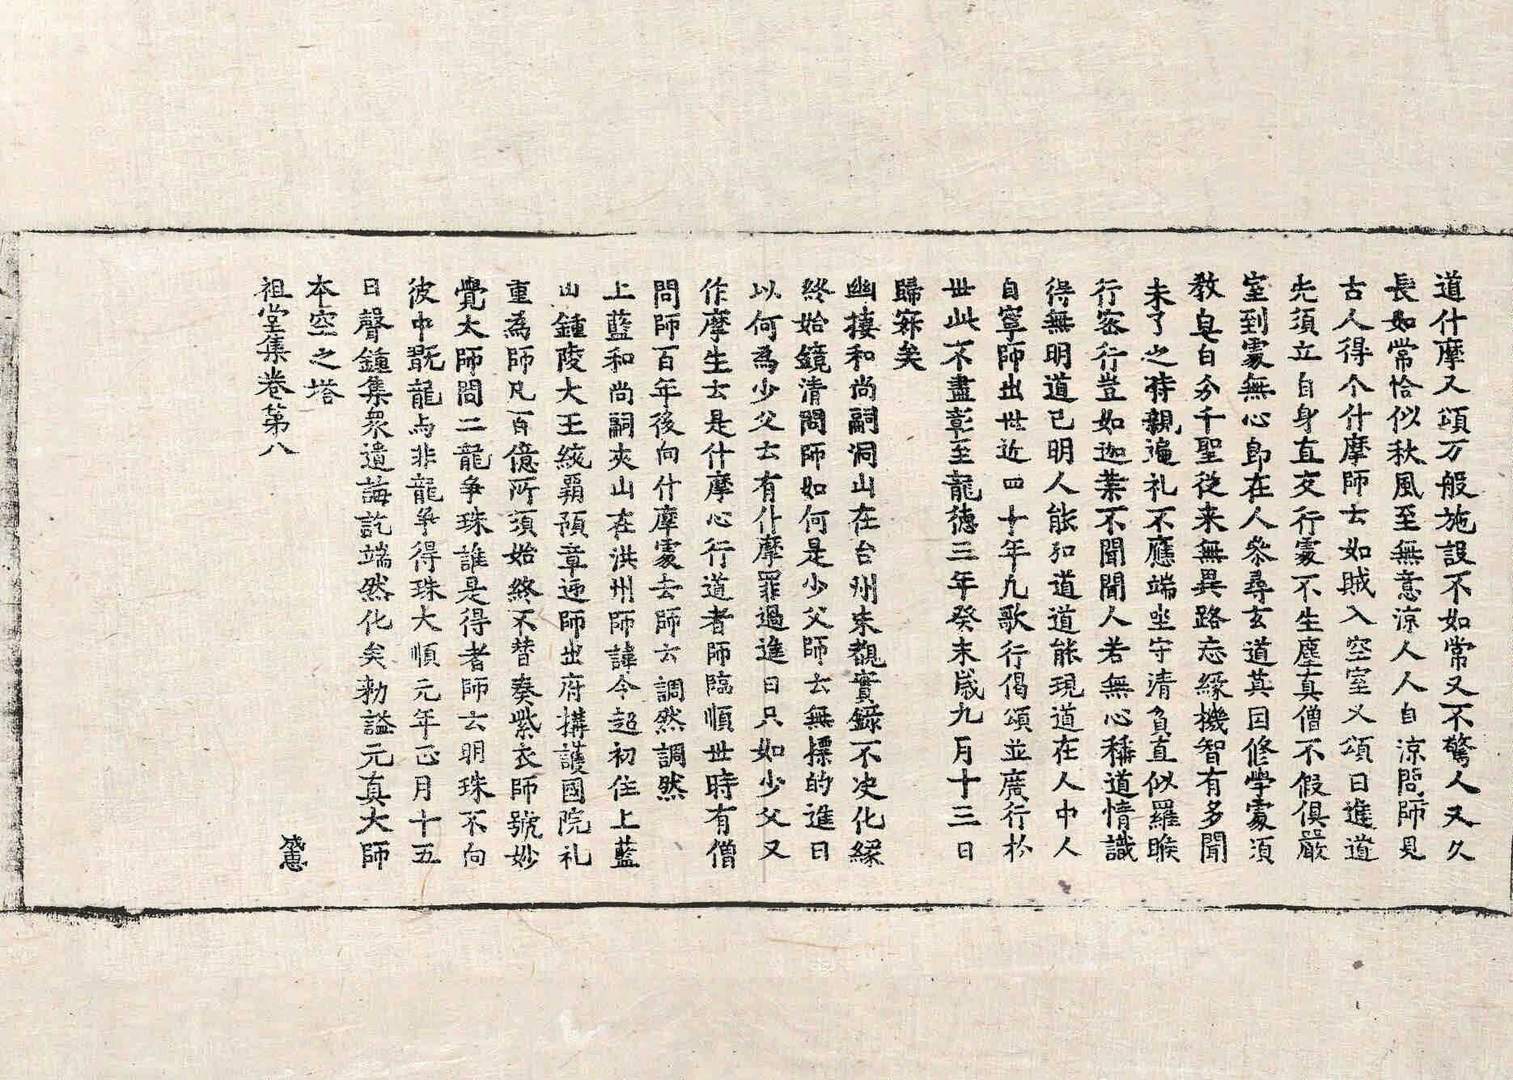 道什摩又頌万般施設不如常又不驚人又久
長如常恰似秋風至無意涼人人自涼問師見
古人得个什摩師云如賊入空室又頌曰進道
先須立自身直交行處不生塵真僧不假俱嚴
室到處無心即在人叅尋玄道莫因修學處須
教皂白分千聖從来無異路忘緣機智有多聞
未了之時親遍礼不應端坐守清貧直似羅睺
行密行豈如迦葉不聞聞人若無心稱道情識
得無明道已明人能弘道道能現道在人中人
自寧師出世近四十年九歌行偈頌並廣行於
世此不盡彰至龍德三年癸未歲九月十三日
歸寂矣
幽棲和尚嗣洞山在台州未覩實錄不决化緣
終始鏡清問師如何是少父師云無標的進曰
以何為少父去有什摩罪過進日只如少父又
作摩生云是什摩心行道者師臨順世時有僧
問師百年後向什摩處去師云調然調然
上藍和尚嗣夾山在洪州師諱令超初住上藍
山鍾陵大王統覇預章迎師出府搆護國院礼
重為師凡百億所湏始終不替奏紫衣師號妙
覺大師問二龍争珠誰是得者師云明珠不向
彼中翫龍与非龍争得珠大順元年正月十五
日聲鍾集衆遺誨訖端然化矣勅謚元真大師
本空之塔
祖堂集卷第八